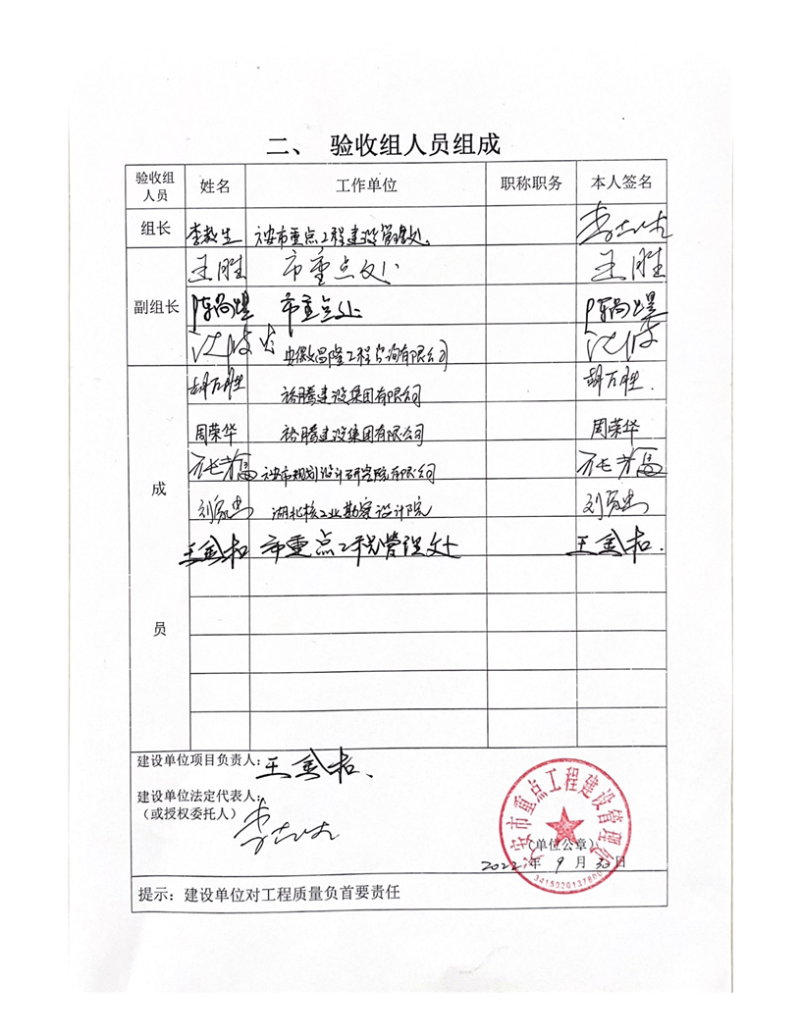 二、 验收组人员组成
验收组人员 姓名 工作单位 职称职务 本人签名
组长 李教生 六安市重点工程建设管理处
王胜 市重点处 王胜
副组长 市重点处
沈波 安徽昌隆工程咨询有限公司 沈波
胡万胜 裕腾建设集团有限公司 胡万胜
周荣华 裕腾建设集团有限公司 周荣华
成 六安市规划设计研究院有限公司
湖北核工业勘察设计院
市重点工程管理处
员
建设单位项目负责人：
建设单位法定代表人：
（或授权委托人）
六安市重点工程建设管理处
（单位公章）
2022年 9 月 30日
提示：建设单位对工程质量负首要责任